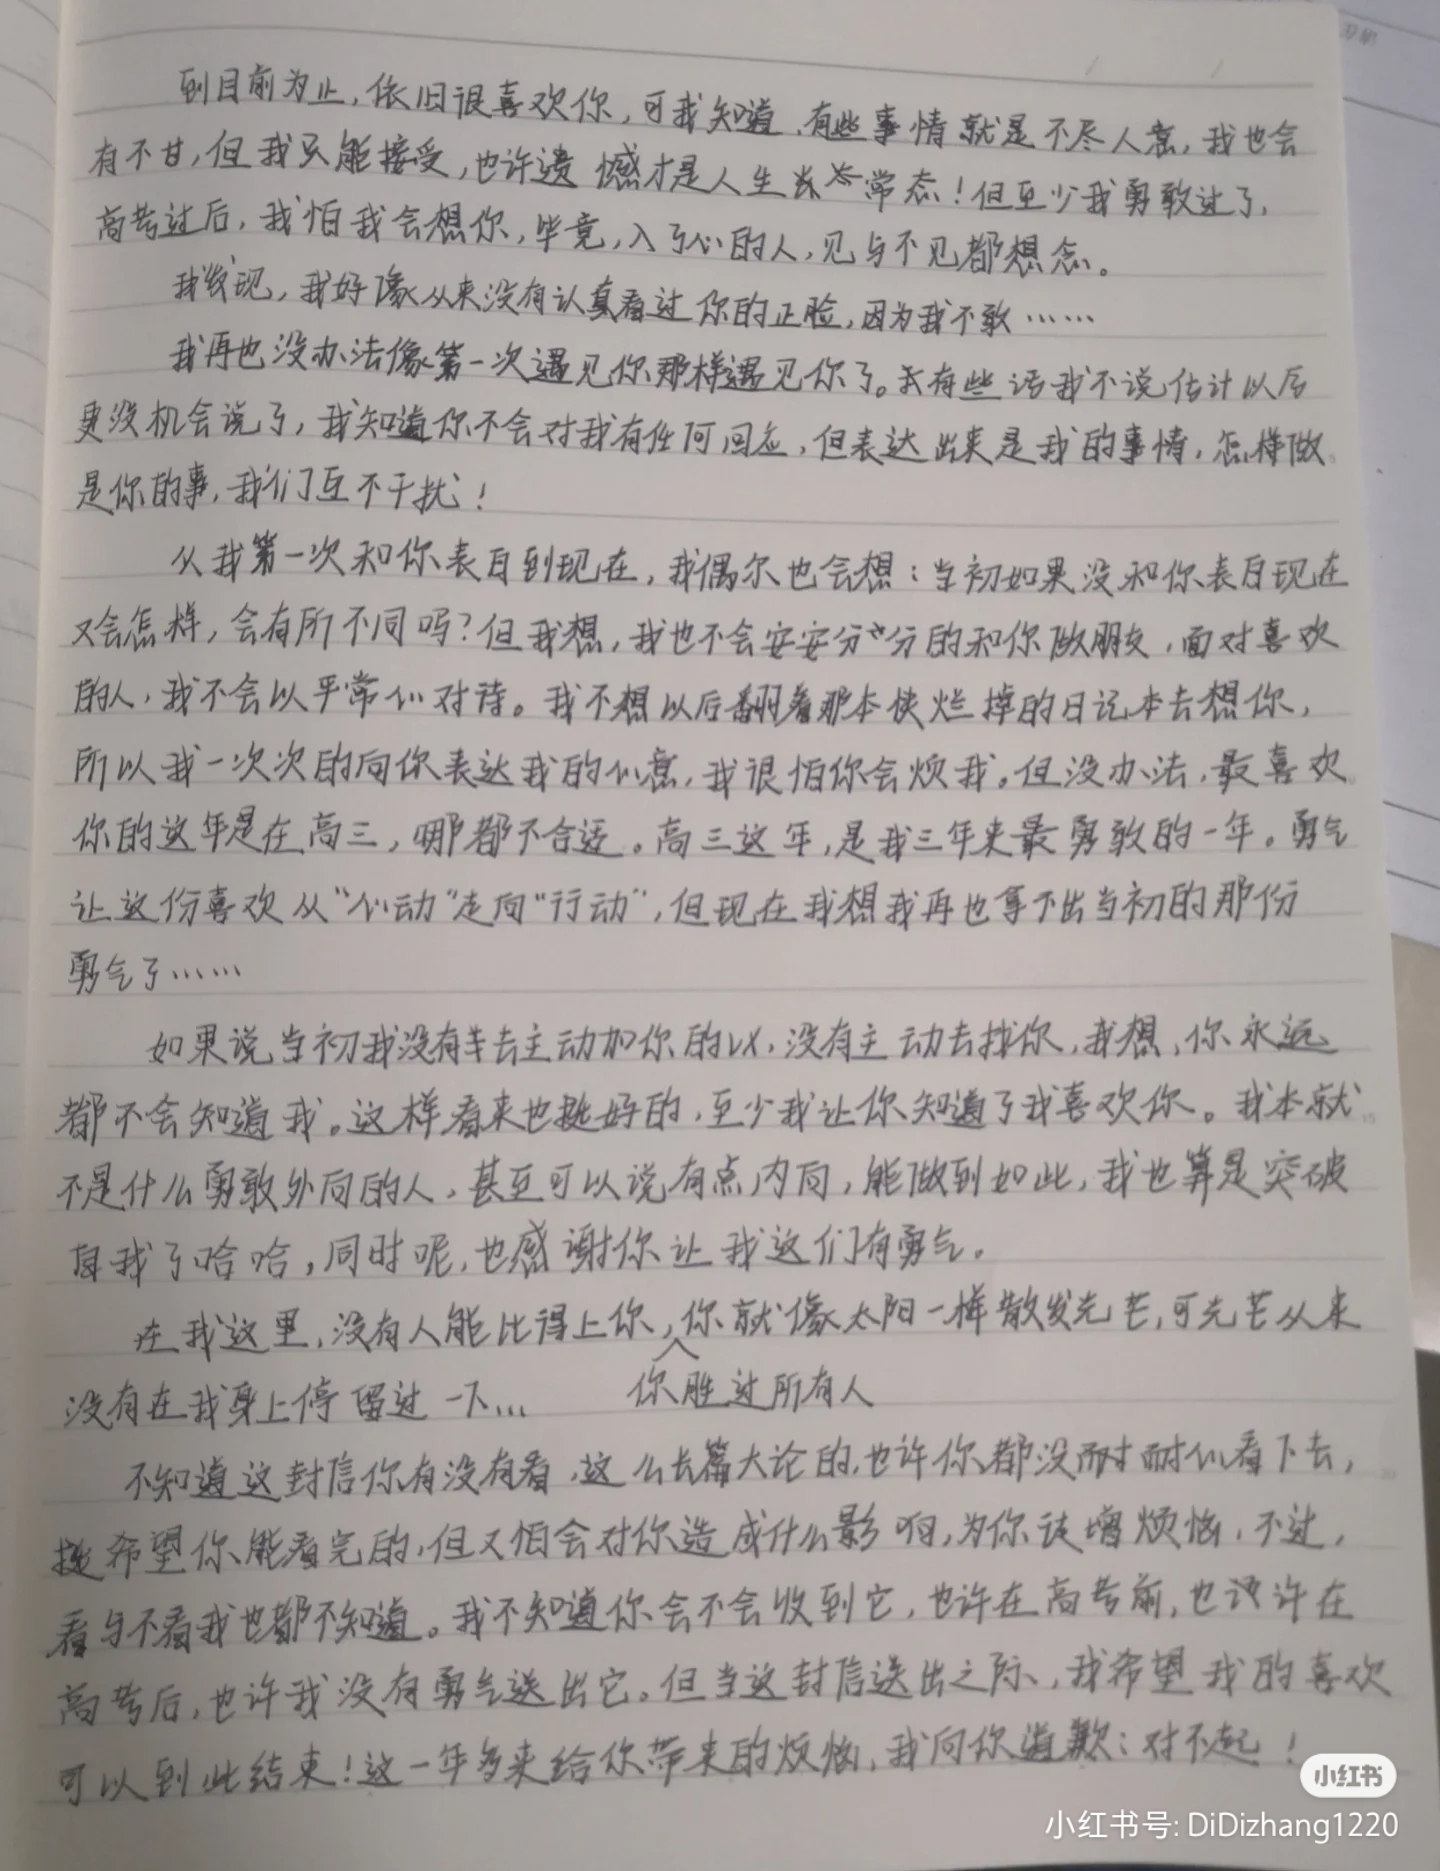 到目前为止，依旧很喜欢你，可我知道，有些事情就是不尽人意，我也会
有不甘，但我只能接受，也许遗憾才是人生常态！但至少我勇敢过了，
高考过后，我怕我会想你，毕竟，入了心的人，见与不见都想念。
我发现，我好像从来没有认真看过你的正脸，因为我不敢……
我再也没办法像第一次遇见你那样遇见你了。有些话我不说估计以后
更没机会说了，我知道你不会对我有任何回应，但表达出来是我的事情，怎样做
是你的事，我们互不干扰！
从我第一次和你表白到现在，我偶尔也会想：当初如果没和你表白现在
又会怎样，会有所不同吗？但我想，我也不会安安分分的和你做朋友，面对喜欢
的人，我不会以平常心对待。我不想以后翻着那本快烂掉的日记本去想你，
所以我一次次的向你表达我的心意，我很怕你会烦我。但没办法，最喜欢
你的这年是在高三，哪都不合适。高三这年，是我三年来最勇敢的一年。勇气
让这份喜欢从“心动”走向“行动”，但现在我想我再也拿不出当初的那份
勇气了……
如果说当初我没有去主动加你的VX，没有主动去找你，我想，你永远
都不会知道我。这样看来也挺好的，至少我让你知道了我喜欢你。我本就
不是什么勇敢外向的人，甚至可以说有点内向，能做到如此，我也算是突破
自我了哈哈，同时呢，也感谢你让我这们有勇气。
在我这里，没有人能比得上你，你就像太阳一样散发光芒，可光芒从来
没有在我身上停留过一下… 你胜过所有人
不知道这封信你有没有看，这么长篇大论的，也许你都没耐心看下去，
挺希望你能看完的，但又怕会对你造成什么影响，为你徒增烦恼，不过，
看与不看我也都不知道。我不知道你会不会收到它，也许在高考前，也许在
高考后，也许我没有勇气送出它。但当这封信送出之际，我希望我的喜欢
可以到此结束！这一年多来给你带来的烦恼，我向你道歉：对不起！
小红书
小红书号: DiDizhang1220